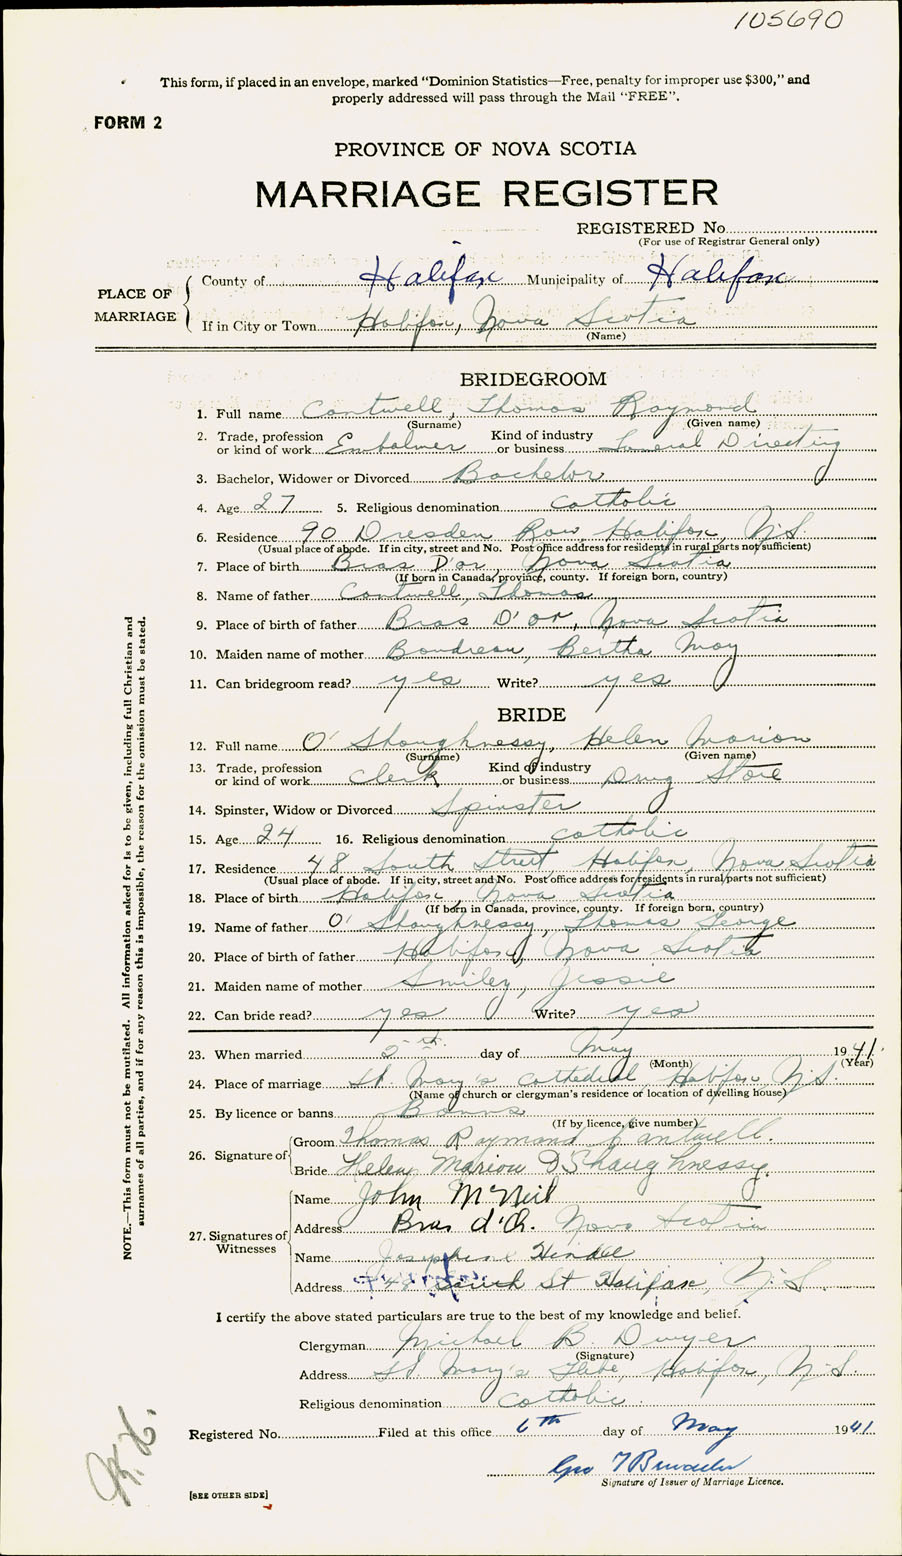 105690
This form, if placed in an envelope, marked "Dominion Statistics—Free, penalty for improper use $300," and
properly addressed will pass through the Mail "FREE".
FORM 2
PROVINCE OF NOVA SCOTIA
MARRIAGE REGISTER
REGISTERED No.
(For use of Registrar General only)
PLACE OF MARRIAGE
County of Halifax Municipality of Halifax
If in City or Town Halifax, Nova Scotia
(Name)
BRIDEGROOM
1. Full name Cantwell, Thomas Raymond
(Surname) (Given name)
2. Trade, profession or kind of work Embalmer Kind of industry or business Funeral Directing
3. Bachelor, Widower or Divorced Bachelor
4. Age 27 5. Religious denomination Catholic
6. Residence 90 Dresden Row, Halifax, N.S.
(Usual place of abode. If in city, street and No. Post office address for residents in rural parts not sufficient)
7. Place of birth Bras D'or, Nova Scotia
(If born in Canada, province, county. If foreign born, country)
8. Name of father Cantwell, Thomas
9. Place of birth of father Bras D'or, Nova Scotia
10. Maiden name of mother Boudreau, Bertha May
11. Can bridegroom read? yes Write? yes
BRIDE
12. Full name O'Shaughnessy, Helen Marion
(Surname) (Given name)
13. Trade, profession or kind of work Clerk Kind of industry or business Drug Store
14. Spinster, Widow or Divorced Spinster
15. Age 24 16. Religious denomination Catholic
17. Residence 48 South Street, Halifax, Nova Scotia
(Usual place of abode. If in city, street and No. Post office address for residents in rural parts not sufficient)
18. Place of birth Halifax, Nova Scotia
(If born in Canada, province, county. If foreign born, country)
19. Name of father O'Shaughnessy, Thomas George
20. Place of birth of father Halifax, Nova Scotia
21. Maiden name of mother Smiley, Jessie
22. Can bride read? yes Write? yes
23. When married 5th day of May 1941.
(Month) (Year)
24. Place of marriage St. Mary's Cathedral, Halifax, N.S.
(Name of church or clergyman's residence or location of dwelling house)
25. By licence or banns Banns
(If by licence, give number)
26. Signature of
Groom Thomas Raymond Cantwell.
Bride Helen Marion O'Shaughnessy.
27. Signatures of Witnesses
Name John McNeil
Address Bras d'Or. Nova Scotia
Name Josephine
Address 48 South St Halifax, N.S.
I certify the above stated particulars are true to the best of my knowledge and belief.
Clergyman Michael B. Dwyer
(Signature)
Address St. Mary's Glebe, Halifax, N.S.
Religious denomination Catholic
Registered No. Filed at this office 6th day of May 1941
Geo
Signature of Issuer of Marriage Licence.
[SEE OTHER SIDE]
NOTE.—This form must not be mutilated. All information asked for is to be given, including full Christian and
surnames of all parties, and if for any reason this is impossible, the reason for the omission must be stated.